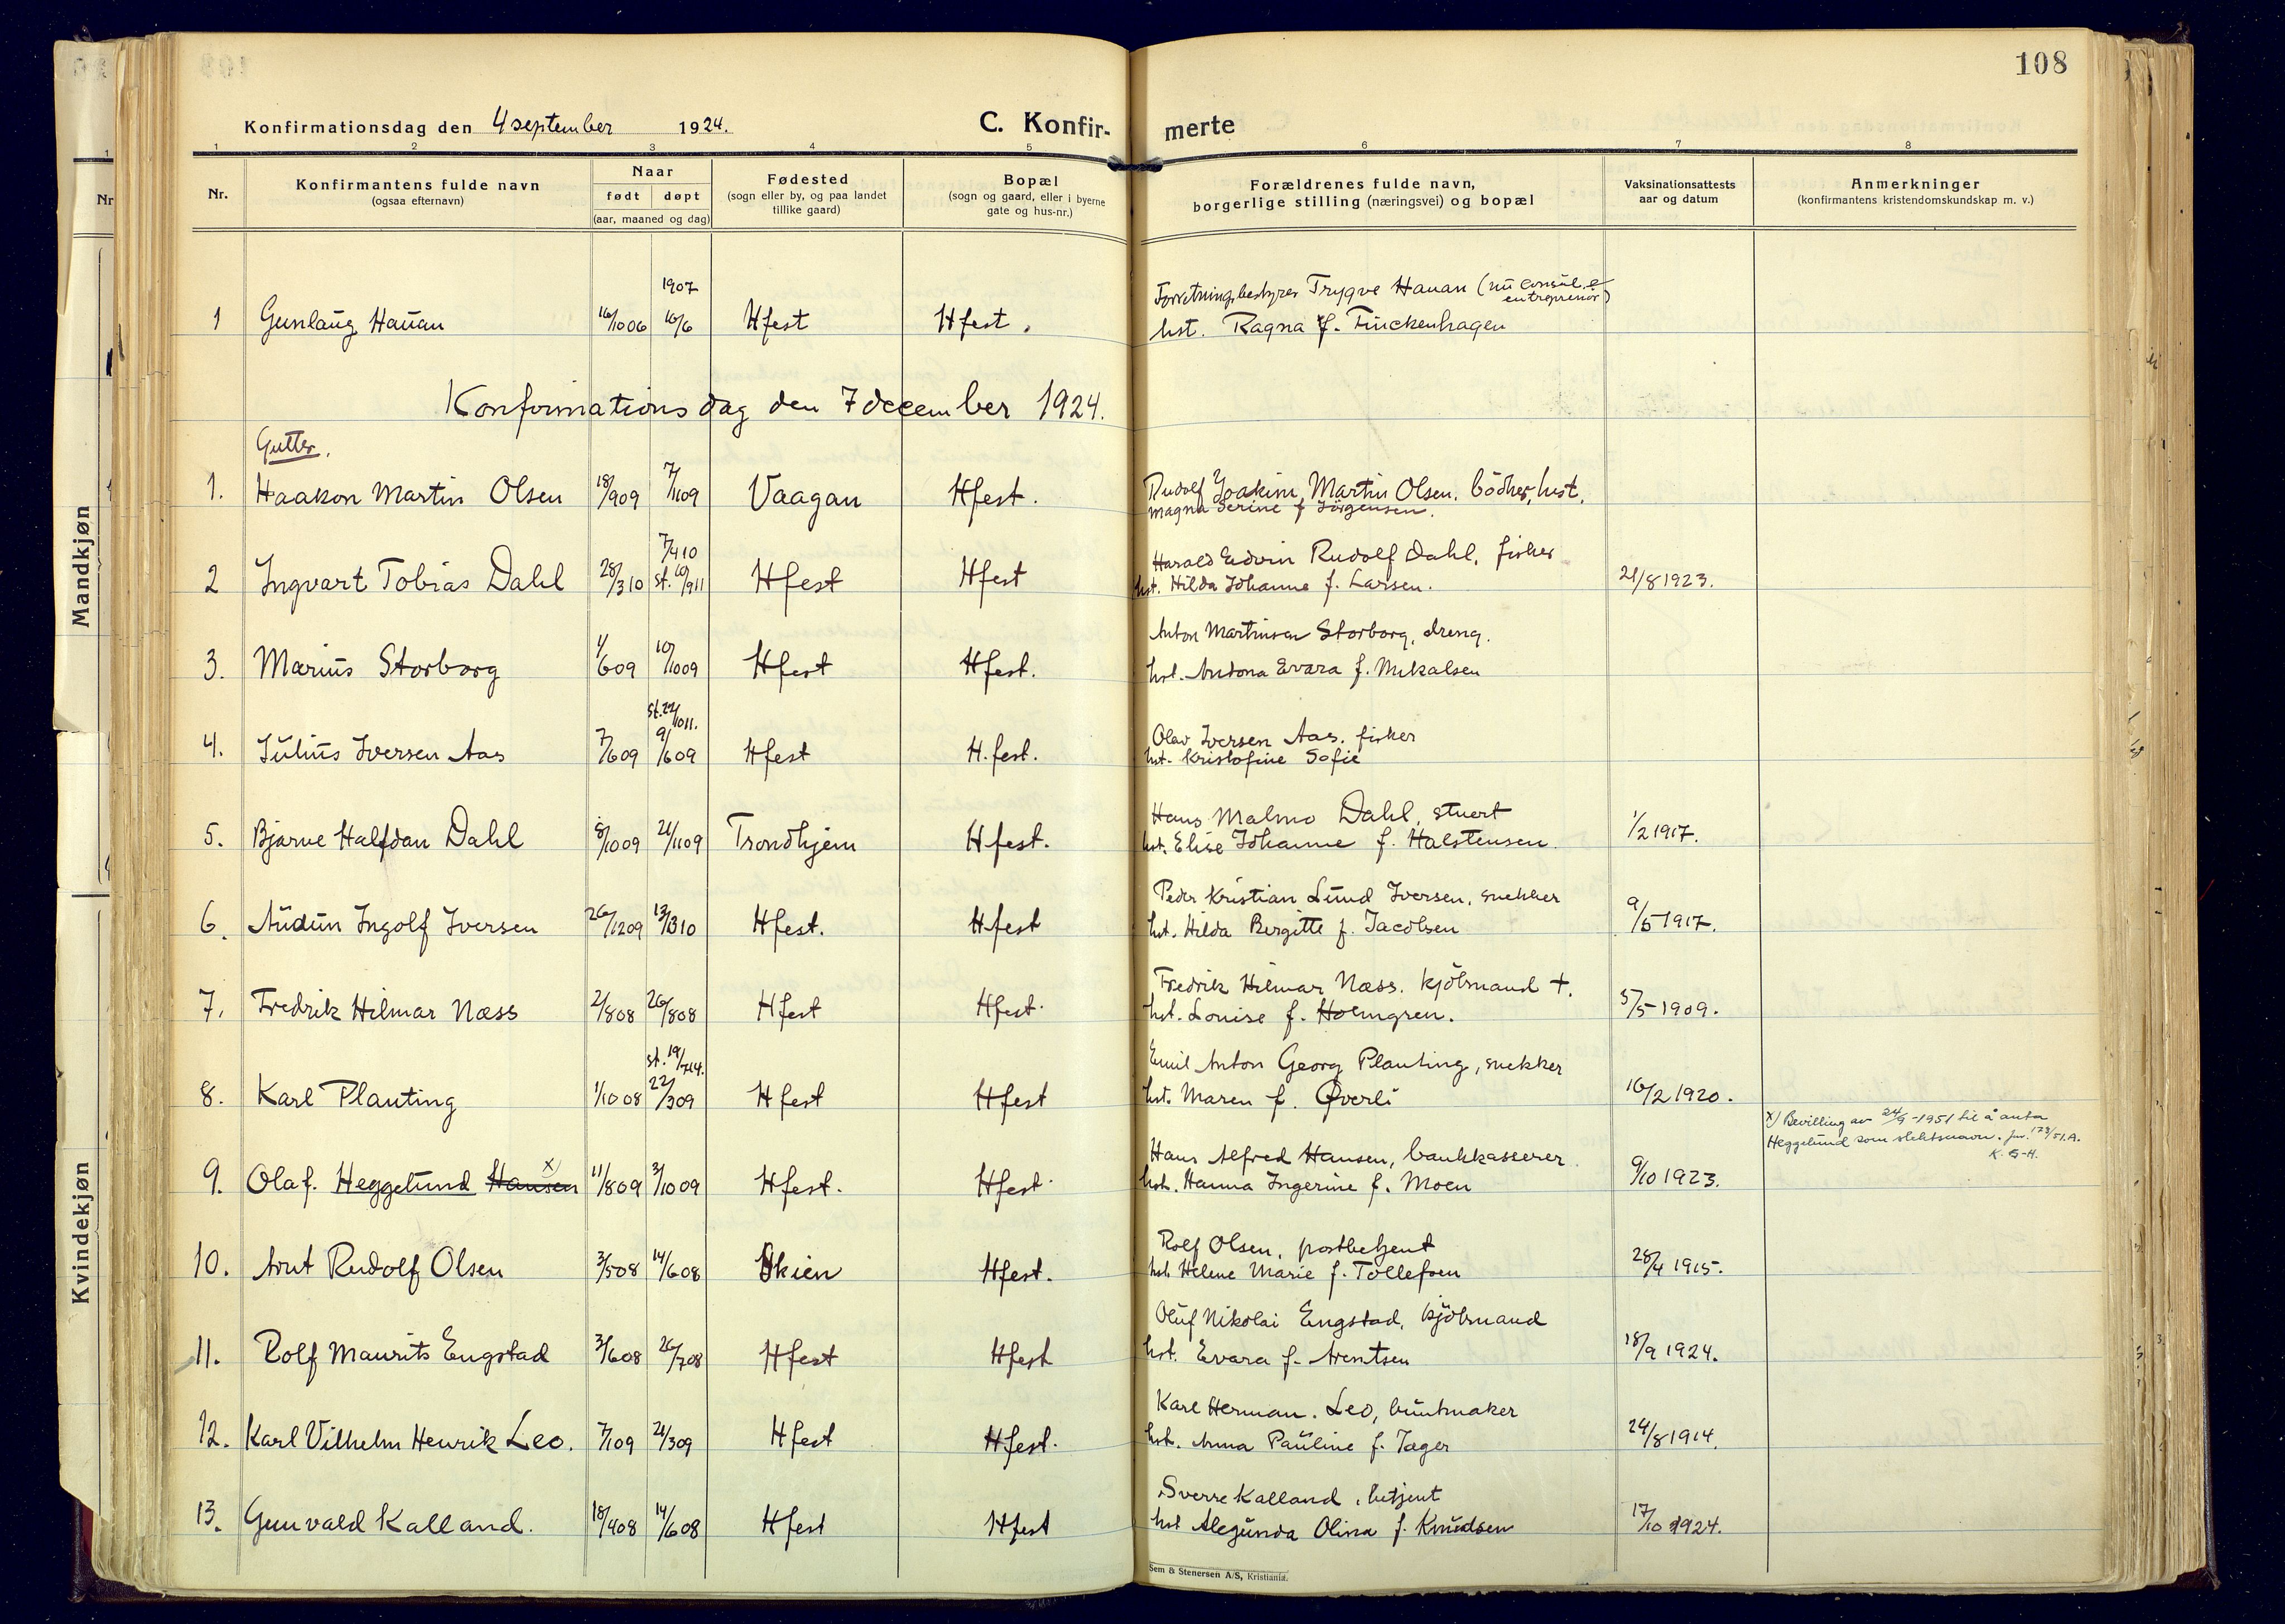 108
Konfirmationsdag den 4 september 1924.
C. Konfir- merte
1 2 3 4 5 6 7 8
Nr.
Konfirmantens fulde navn
(ogsaa efternavn)
Naar
født døpt
(aar, maaned og dag)
Fødested
(sogn eller by, og paa landet
tillike gaard)
Bopæl
(sogn og gaard, eller i byerne
gate og hus-nr.)
Forældrenes fulde navn,
borgerlige stilling (næringsvei) og bopæl
Vaksinationsattests
aar og datum
Anmerkninger
(konfirmantens kristendomskundskap m. v.)
1907
Forretningsbestyrer Trygve Hauan (nu consul &
entreprenør)
1 Gunlaug Hauan 16/10 06 16/6 Hfest Hfest. hst. Ragna f. Finckenhagen
Konfirmationsdag den 7 december 1924.
Gutter.
1. Haakon Martin Olsen 18/9 09 7/11 09 Vaagan Hfest. Rudolf Joakim Martin Olsen. bödker, hst.
Magna Serine f Jörgensen.
7/4 10
Harald Edvin Rudolf Dahl, fisker
2 Ingvart Tobias Dahl 28/3 10 st. 10/9 11 Hfest Hfest hst. Hilda Johanne f. Larsen. 21/8 1923.
Anton Martinsen Storborg, dreng.
3. Marius Storborg 1/6 09 10/10 09 Hfest Hfest. hst. Antona Evara f. Mikalsen
st. 22/10 11.
Olav Iversen Aas. fisker
4. Julius Iversen Aas 7/6 09 9/6 09 Hfest H.fest. hst. Kristofine Sofie
Hans Malmo Dahl, stuert
5. Bjarne Halfdan Dahl 8/10 09 21/11 09 Trondhjem Hfest. hst. Elise Johanne f. Halstensen. 1/2 1917.
Peder Kristian Lund Iversen, snekker
6. Audun Ingolf Iversen 26/12 09 13/3 10 Hfest. Hfest hst. Hilda Bergitte f. Jacobsen 9/5 1917.
Fredrik Hilmar Næss. kjöbmand +.
7. Fredrik Hilmar Næss 2/8 08 26/8 08 Hfest Hfest. hst. Louise f. Holmgren. 5/5-1909.
st. 19/7 14.
Emil Anton Georg Planting, snekker
8. Karl Planting 1/10 08 22/3 09 Hfest Hfest hst. Maren f. Øverli 16/2 1920.
x) Bevilling av 24/9-1951 til å anta
Heggelund som slektsnavn. jnr. 173/51.A.
K. G-H.
Hans Alfred Hansen, bankkasserer
9. Olaf. Heggelund Hansen x) 11/8 09 3/10 09 Hfest. Hfest. hst. Hanna Ingerine f. Moen 9/10 1923.
Rolf Olsen, postbetjent
10. Arnt Rudolf Olsen 3/5 08 14/6 08 Skien Hfest. hst. Helene Marie f. Tollefsen 28/4 1915.
Oluf Nikolai Engstad, kjöbmand
11. Rolf Maurits Engstad 3/6 08 26/7 08 Hfest Hfest hst. Evara f. Arentsen 18/9 1924.
Karl Herman. Leo, buntmaker
12. Karl Vilhelm Henrik Leo. 7/1 09 21/3 09 Hfest Hfest. hst. Anna Pauline f. Jæger 24/8 1914.
Sverre Kalland, betjent
13. Gunvald Kalland. 18/4 08 14/6 08 Hfest Hfest hst Alegunda Olina f. Knudsen 17/10 1924.
Sem & Stenersen A/S, Kristiania.
Nr
Mandkjøn
Kvindekjøn